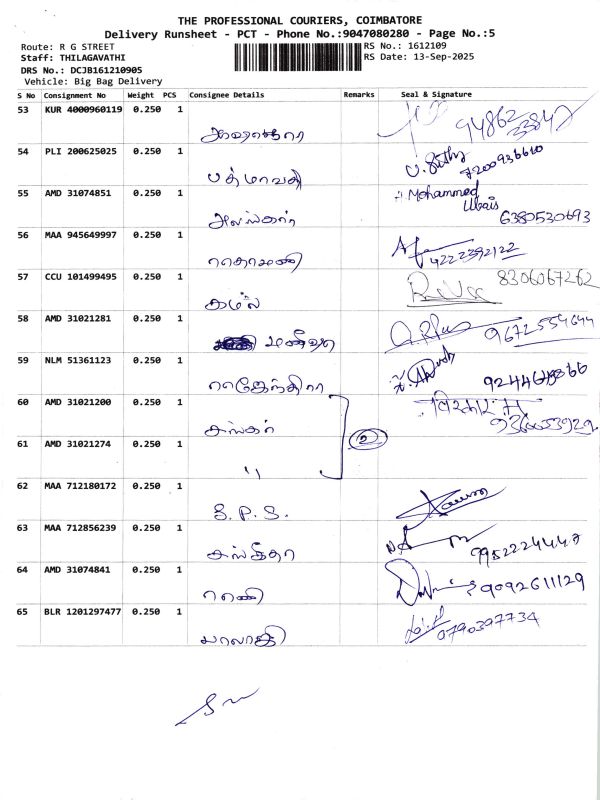 THE PROFESSIONAL COURIERS, COIMBATORE
Delivery Runsheet - PCT - Phone No.:9047080280 - Page No.:5
Route: R G STREET
Staff: THILAGAVATHI
DRS No.: DCJB161210905
Vehicle: Big Bag Delivery
RS No.: 1612109
RS Date: 13-Sep-2025
S No Consignment No Weight PCS Consignee Details Remarks Seal & Signature
53 KUR 4000960119 0.250 1
54 PLI 200625025 0.250 1 பத்மாவதி 7200936610
55 AMD 31074851 0.250 1 அலங்கார் Mohammed Ubais 6380530693
56 MAA 945649997 0.250 1 கோமணி 4222392122
57 CCU 101499495 0.250 1 கமல் 8306067262
58 AMD 31021281 0.250 1 9672554644
59 NLM 51361123 0.250 1 ராஜேந்திரா
60 AMD 31021200 0.250 1 சங்கர் 2
61 AMD 31021274 0.250 1 "
62 MAA 712180172 0.250 1 S.P.S.
63 MAA 712856239 0.250 1 சங்கீதா 9952224447
64 AMD 31074841 0.250 1 ராணி 9092611129
65 BLR 1201297477 0.250 1 பாலாஜி 0790397734